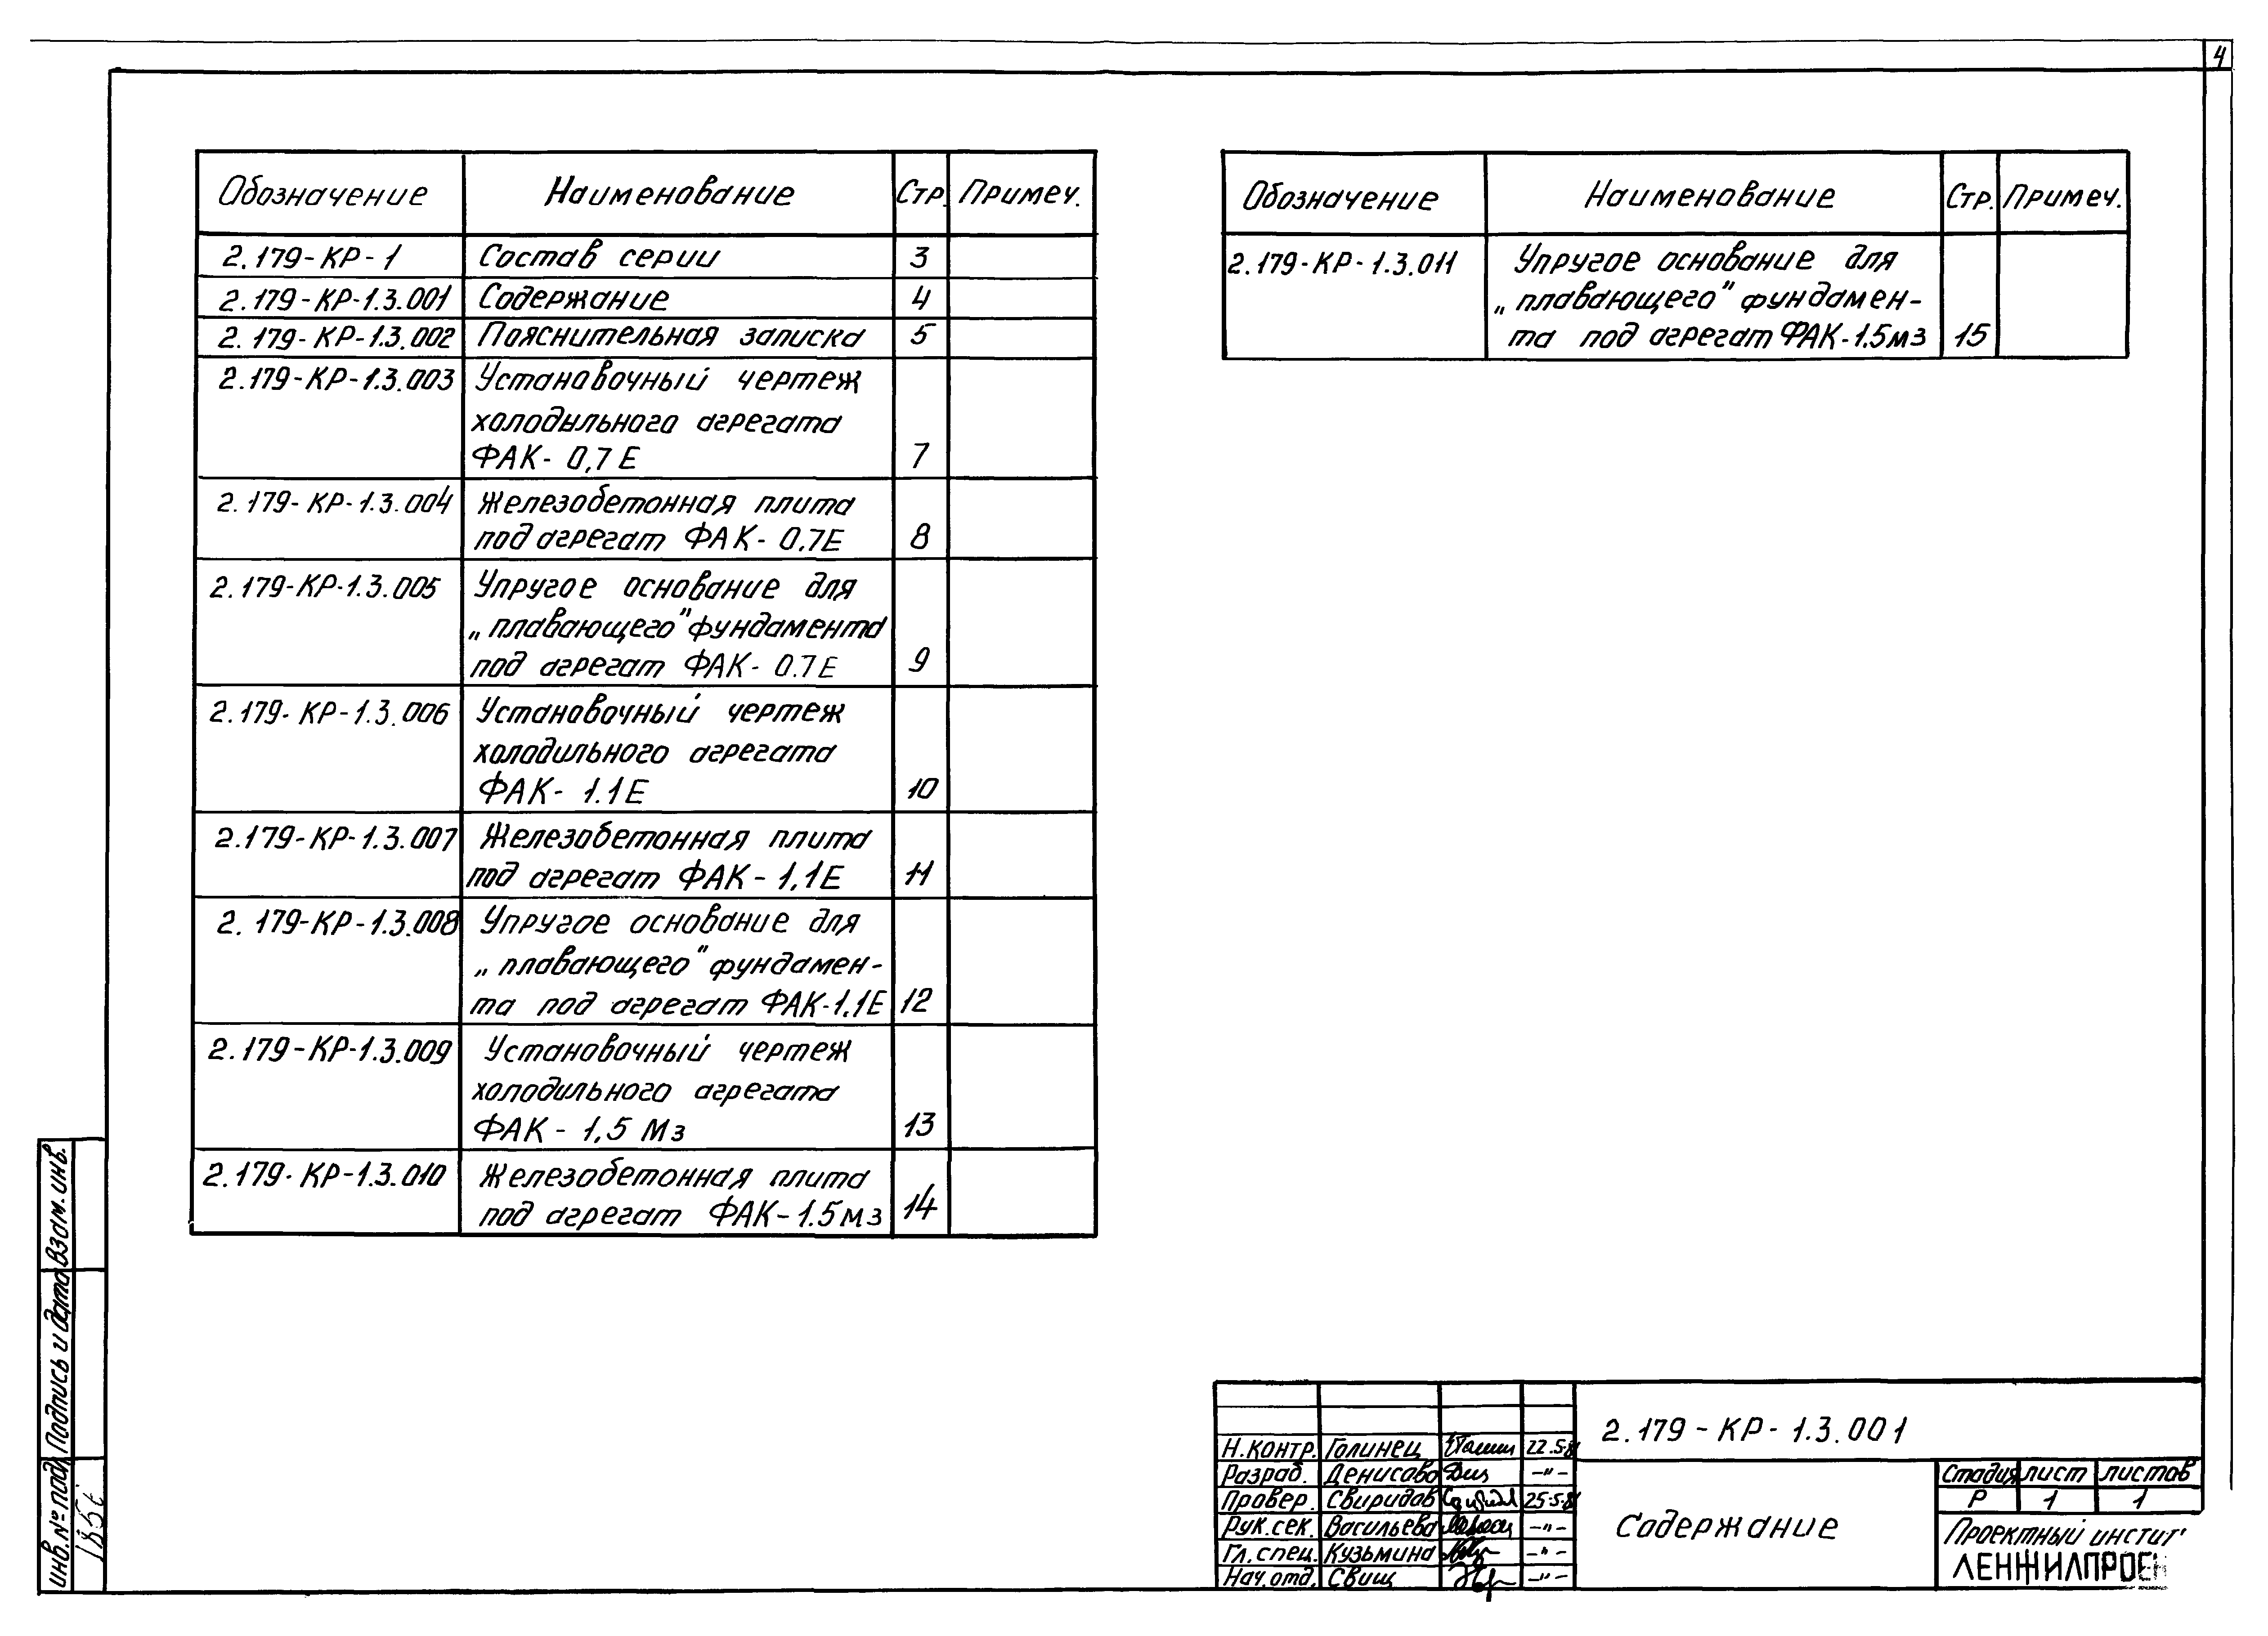 4
Обозначение Наименование Стр. Примеч.
2.179-КР-1 Состав серии 3
2.179-КР-1.3.001 Содержание 4
2.179-КР-1.3.002 Пояснительная записка 5
2.179-КР-1.3.003 Установочный чертеж
холодильного агрегата
ФАК- 0,7 Е 7
2.179-КР-1.3.004 Железобетонная плита
под агрегат ФАК- 0.7Е 8
2.179-КР-1.3.005 Упругое основание для
„плавающего" фундамента
под агрегат ФАК- 0.7Е 9
2.179-КР-1.3.006 Установочный чертеж
холодильного агрегата
ФАК- 1.1Е 10
2.179-КР-1.3.007 Железобетонная плита
под агрегат ФАК- 1,1Е 11
2.179-КР-1.3.008 Упругое основание для
„плавающего" фундамен-
та под агрегат ФАК-1.1Е 12
2.179-КР-1.3.009 Установочный чертеж
холодильного агрегата
ФАК- 1,5 Мз 13
2.179-КР-1.3.010 Железобетонная плита
под агрегат ФАК-1.5мз 14
Обозначение Наименование Стр. Примеч.
2.179-КР-1.3.011 Упругое основание для
„плавающего" фундамен-
та под агрегат ФАК-1.5мз 15
Взам. инв.
Подпись и дата
инв.№ под
2.179-КР-1.3.001
Н.контр. Голинец 22.5.81
Разраб. Денисова -"-
Провер. Свиридов 25.5.81
Рук.сек. Васильева -"-
Гл.спец. Кузьмина -"-
Нач.отд. Свищ -"-
Содержание
Стадия лист листов
Р 1 1
Проектный инстит
ЛЕНЖИЛПРОЕК